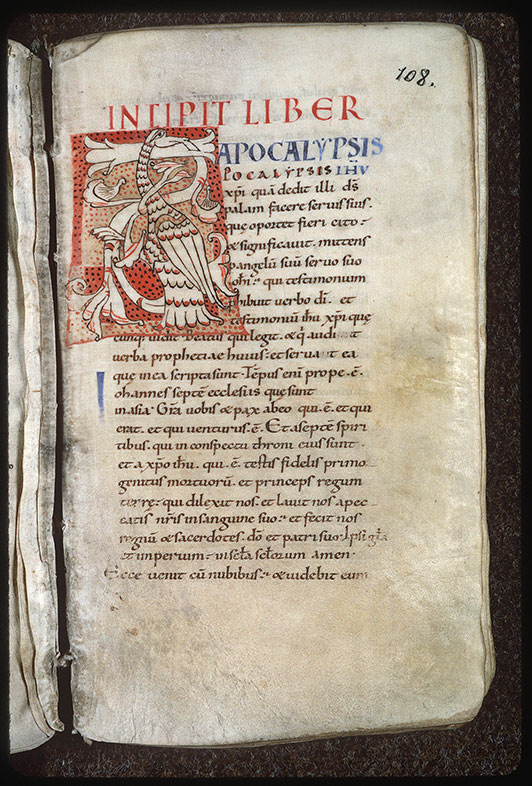 108.
INCIPIT LIBER
APOCALYPSIS
POCALYPSIS IHV
xpi quā dedit illi ds
palam facere seruis suis.
que oportet fieri cito.
& significauit. mittens
p angelū suū seruo suo
iohi. qui testimonium
phibuit uerbo di. et
testimoniū ihu xpi que
cunq; uidit. Beatus qui legit. & q audit
uerba prophetiae huius. et seruant ea
que in ea scripta sunt. Tēpus enī prope. ē.
Iohannes septē ecclesiis que sunt
in asia. Gra uobis & pax abeo qui. ē. et qui
erat. et qui uenturus. ē. Et a septē spiri
tibus. qui in conspectu throni eius sunt.
et a xpo ihu. qui. ē. testis fidelis primo
genitus mortuorū. et princeps regum
terre. qui dilexit nos. et lauit nos a pec
catis nris in sanguine suo. et fecit nos
regnū & sacerdotes. do et patri suo. Ipsi gla
et imperium. in scla sclorum amen.
Ecce uenit cū nubibus. & uidebit eum